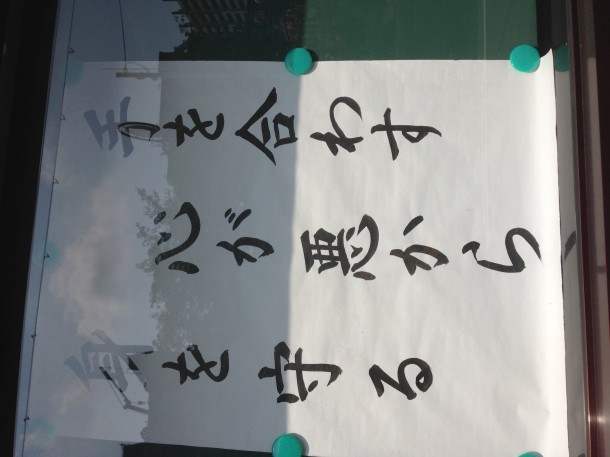 手を合わす
心が悪から
身を守る